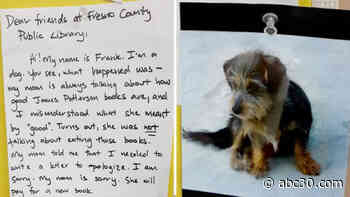 Dear friends at Fresno County
Public Library:
Hi! My name is Frank. I'm a
dog. You see, what happened was –
my mom is always talking about how
good James Patterson books are, and
I misunderstood what she meant
by "good". Turns out, she was not
talking about eating those books.
My mom told me that I needed to
write a letter to apologize. I am
sorry. My mom is sorry. She will
pay for a new book.
abc30.com